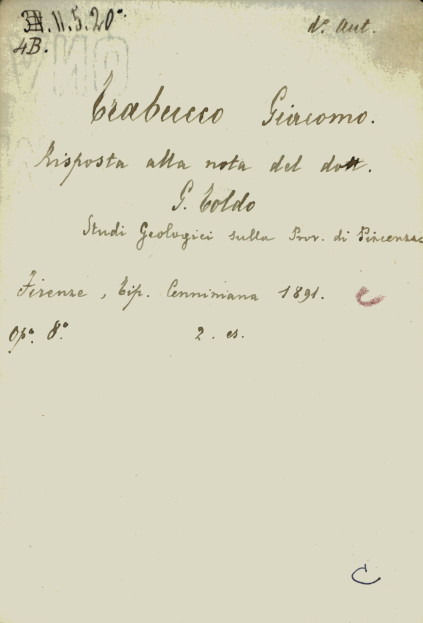 II.5.20
d. Aut.
4B.
Trabucco Giacomo.
Risposta alla nota del dott.
G. Toldo
Studi Geologici sulla Prov. di Piacenza
Firenze, Tip. Cenniniana 1891.
C
Opº. 8º. 2. es.
C